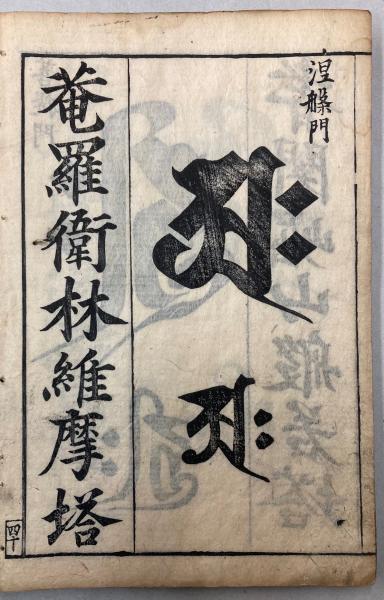 涅槃門
𑖀𑖾
𑖀𑖾
菴羅衛林維摩塔
四十